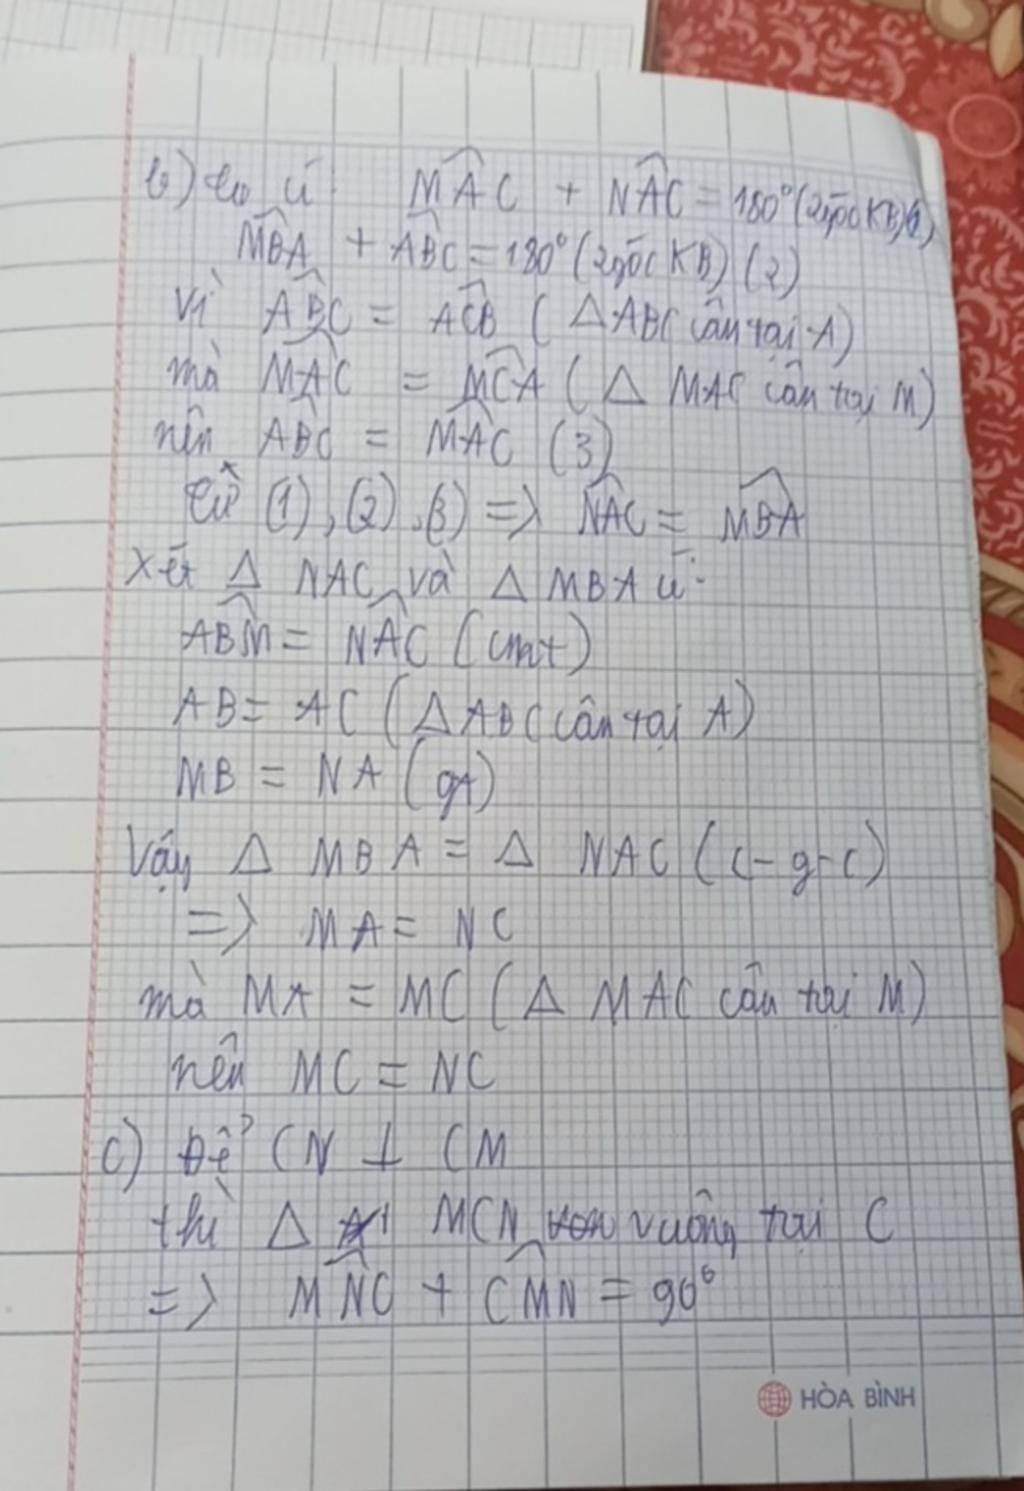 b) Ta có: MAC + NAC = 180° (2 góc KB) (1)
MBA + ABC = 180° (2 góc KB) (2)
Vì ABC = ACB (Δ ABC cân tại A)
mà MAC = MCA (Δ MAC cân tại M)
nên ABC = MAC (3)
Từ (1), (2), (3) => NAC = MBA
Xét Δ NAC và Δ MBA có:
ABM = NAC (cmt)
AB = AC (Δ ABC cân tại A)
MB = NA (gt)
Vậy Δ MBA = Δ NAC (c-g-c)
=> MA = NC
mà MA = MC (Δ MAC cân tại M)
nên MC = NC
c) Để CN ⊥ CM
thì Δ MCN vuông tại C
=> MNC + CMN = 90°
HÒA BÌNH